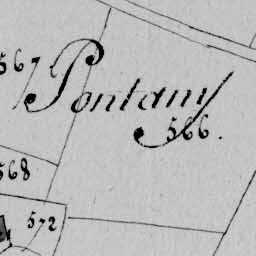 567
Pontamƒ
566.
568
572